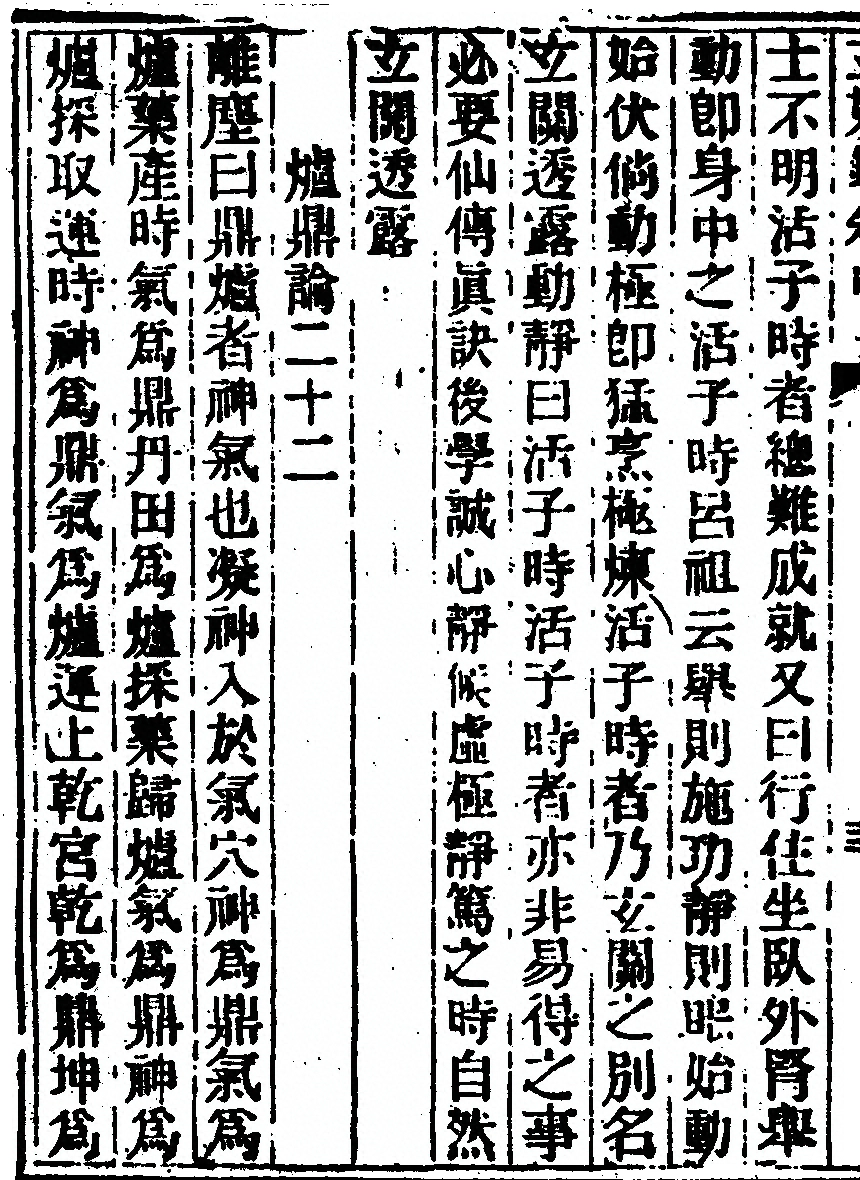 士不明活子時者總難成就又曰行住坐臥外腎舉
動卽身中之活子時呂祖云舉則施功靜則眠始動
始伏倘動極卽猛烹極煉活子時者乃玄關之別名
玄關透露動靜曰活子時活子時者亦非易得之事
必要仙傳眞訣後學誠心靜候虛極靜篤之時自然
玄關透露
爐鼎論二十二
離塵曰鼎爐者神氣也凝神入於氣穴神爲鼎氣爲
爐藥產時氣爲鼎丹田爲爐採藥歸爐氣爲鼎神爲
爐採取運時神爲鼎氣爲爐運上乾宮乾爲鼎坤爲